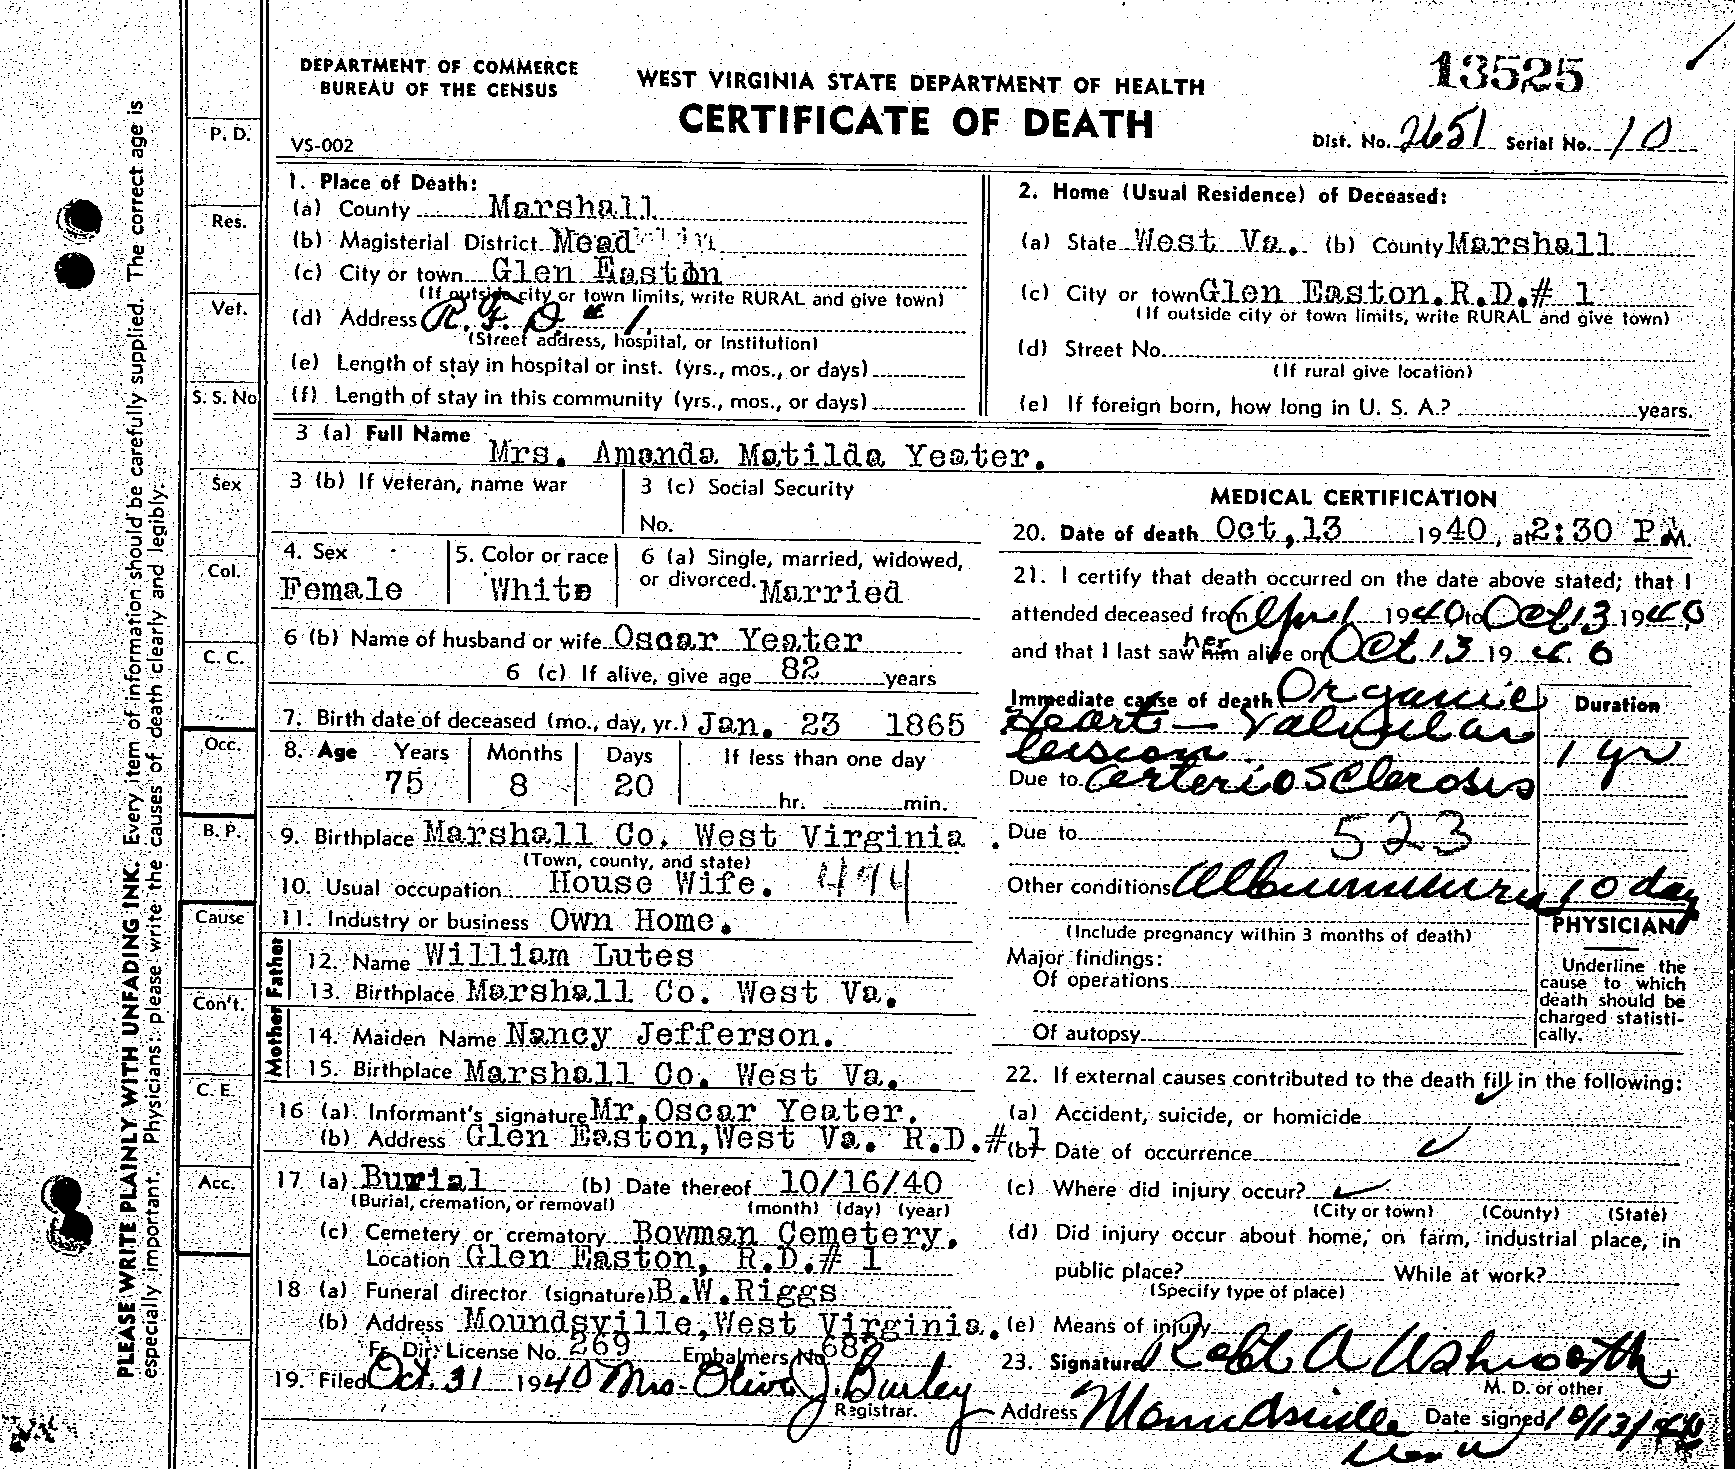 DEPARTMENT OF COMMERCE
BUREAU OF THE CENSUS
WEST VIRGINIA STATE DEPARTMENT OF HEALTH
CERTIFICATE OF DEATH
13525
VS-002
Dist. No. 2651 Serial No. 10
PLEASE WRITE PLAINLY WITH UNFADING INK. Every item of information should be carefully supplied. The correct age is
especially important. Physicians: please write the causes of death clearly and legibly.
P. D.
Res.
Vet.
S. S. No
Sex
Col.
C. C.
Occ.
B. P.
Cause
Con't.
C. E.
Acc.
1. Place of Death:
(a) County Marshall
(b) Magisterial District Mead
(c) City or town Glen Easton
(If outside city or town limits, write RURAL and give town)
(d) Address R. F. D. # 1.
(Street address, hospital, or institution)
(e) Length of stay in hospital or inst. (yrs., mos., or days)
(f) Length of stay in this community (yrs., mos., or days)
2. Home (Usual Residence) of Deceased:
(a) State West Va. (b) County Marshall
(c) City or town Glen Easton.R.D.# 1
(If outside city or town limits, write RURAL and give town)
(d) Street No.
(If rural give location)
(e) If foreign born, how long in U. S. A.? years.
3 (a) Full Name Mrs. Amanda Matilda Yeater.
3 (b) If veteran, name war
3 (c) Social Security
No.
4. Sex
Female
5. Color or race
White
6 (a) Single, married, widowed,
or divorced. Married
6 (b) Name of husband or wife Oscar Yeater
6 (c) If alive, give age 82 years
7. Birth date of deceased (mo., day, yr.) Jan. 23 1865
8. Age Years Months Days If less than one day
75 8 20 hr. min.
9. Birthplace Marshall Co. West Virginia.
(Town, county, and state)
10. Usual occupation House Wife. 494
11. Industry or business Own Home.
Father
12. Name William Lutes
13. Birthplace Marshall Co. West Va.
Mother
14. Maiden Name Nancy Jefferson.
15. Birthplace Marshall Co. West Va.
16 (a). Informant's signature Mr.Oscar Yeater.
(b) Address Glen Easton,West Va. R.D.# 1
17 (a) Burial (b) Date thereof 10/16/40
(Burial, cremation, or removal) (month) (day) (year)
(c) Cemetery or crematory Bowman Cemetery.
Location Glen Easton, R.D.# 1
18 (a) Funeral director (signature) B.W.Riggs
(b) Address Moundsville,West Virginia.
Fr. Dir. License No. 269 Embalmers No. 682
19. Filed Oct. 31 1940 Mrs. Olive J. Burley
Registrar.
MEDICAL CERTIFICATION
20. Date of death Oct,13 1940, at 2:30 P.M.
21. I certify that death occurred on the date above stated; that I
attended deceased from April 1940 to Oct 13 1940
and that I last saw him her alive on Oct 13 1940
Immediate cause of death Organic
Heart - Valvular
Lesion
Duration
1 yr
Due to Arteriosclerosis
Due to 523
Other conditions Albuminuria 10 day
(Include pregnancy within 3 months of death)
Major findings:
Of operations
Of autopsy
PHYSICIAN
Underline the
cause to which
death should be
charged statisti-
cally.
22. If external causes contributed to the death fill in the following:
(a) Accident, suicide, or homicide
(b) Date of occurrence
(c) Where did injury occur?
(City or town) (County) (State)
(d) Did injury occur about home, on farm, industrial place, in
public place? While at work?
(Specify type of place)
(e) Means of injury
23. Signature Robt A Ashworth
M. D. or other
Address Moundsville Date signed 10/13/40